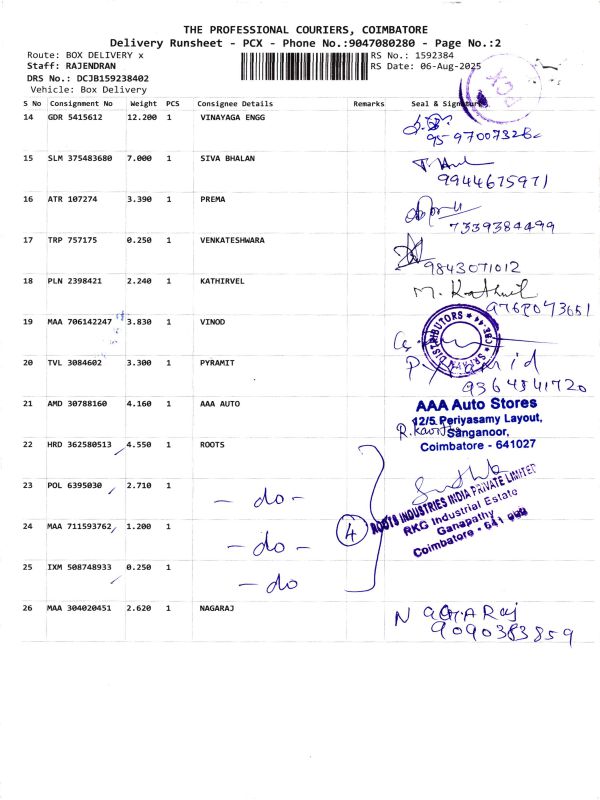 THE PROFESSIONAL COURIERS, COIMBATORE
Delivery Runsheet - PCX - Phone No.:9047080280 - Page No.:2
Route: BOX DELIVERY x
RS No.: 1592384
Staff: RAJENDRAN
RS Date: 06-Aug-2025
DRS No.: DCJB159238402
Vehicle: Box Delivery
PCX
S No Consignment No Weight PCS Consignee Details Remarks Seal & Signature
14 GDR 5415612 12.200 1 VINAYAGA ENGG
15 SLM 375483680 7.000 1 SIVA BHALAN
9944675971
16 ATR 107274 3.390 1 PREMA
7339384499
17 TRP 757175 0.250 1 VENKATESHWARA
9843071012
18 PLN 2398421 2.240 1 KATHIRVEL
M. Kathirvel
19 MAA 706142247 3.830 1 VINOD
DISTRIBUTORS
20 TVL 3084602 3.300 1 PYRAMIT
21 AMD 30788160 4.160 1 AAA AUTO
AAA Auto Stores
12/5, Periyasamy Layout,
Sanganoor,
Coimbatore - 641027
22 HRD 362580513 4.550 1 ROOTS
23 POL 6395030 2.710 1 - do -
24 MAA 711593762 1.200 1 - do -
25 IXM 508748933 0.250 1 - do
4
ROOTS INDUSTRIES INDIA PRIVATE LIMITED
RKG Industrial Estate
Ganapathy
Coimbatore - 641
26 MAA 304020451 2.620 1 NAGARAJ
NAGARaj
9090383859